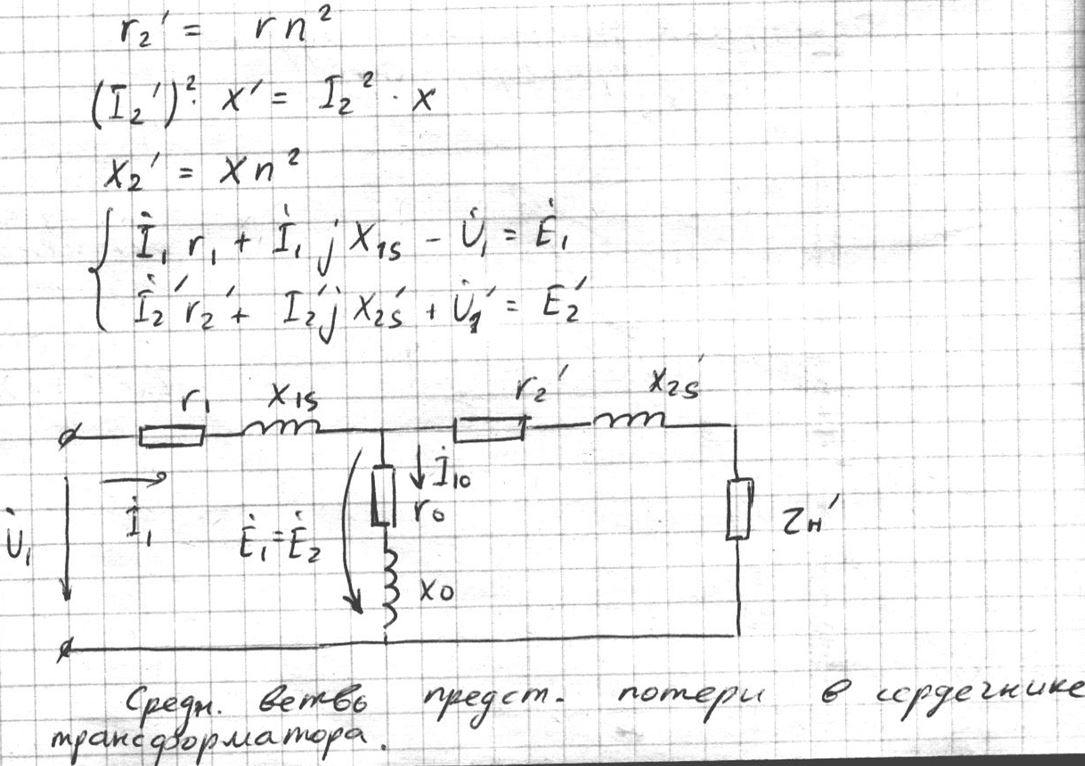 r₂' = r n²
(I₂')² · x' = I₂² · x
x₂' = x n²
İ₁ r₁ + İ₁ j x₁s − U̇₁ = Ė₁
İ₂' r₂' + I₂' j x₂s' + U̇₂' = E₂'
r₁ x₁s r₂' x₂s'
İ₁₀
r₀
U̇₁ İ₁ Ė₁ = Ė₂ zн'
x₀
Средн. ветвь предст. потери в сердечнике
трансформатора.